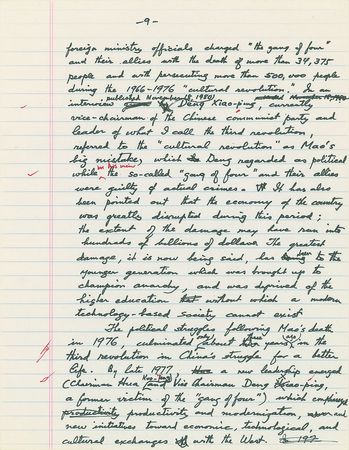 -9-
foreign ministry officials charged "the gang of four"
and their allies with the death of more than 34,375
people and with persecuting more than 500,000 people
during the 1966-1976 "cultural revolution". In an
published November 1980
interview Deng Xiao-ping, currently
vice-chairman of the Chinese communist party and
leader of what I call the third revolution,
referred to the "cultural revolution" as Mao's
big mistake, which Deng regarded as political
in his view
while the so-called "gang of four" and their allies
were guilty of actual crimes. It has also
been pointed out that the economy of the country
was greatly disrupted during this period;
the extent of the damage may have run into
hundreds of billions of dollars. The greatest
been
damage, it is now being said, has to the
younger generation which was brought up to
champion anarchy, and was deprived of the
higher education that without which a modern
technology-based society cannot exist
The political struggles following Mao's death
in 1976, culminated about years in the
third revolution in China's struggle for a better
life. By late 1977 a new leadership emerged
Kuo-feng
(Chairman Hua and Vice Chairman Deng Xiao-ping,
a former victim of the "gang of four") which emphasized
productivity productivity and modernization, and
new initiatives toward economic, technological, and
cultural exchanges with the West. 197